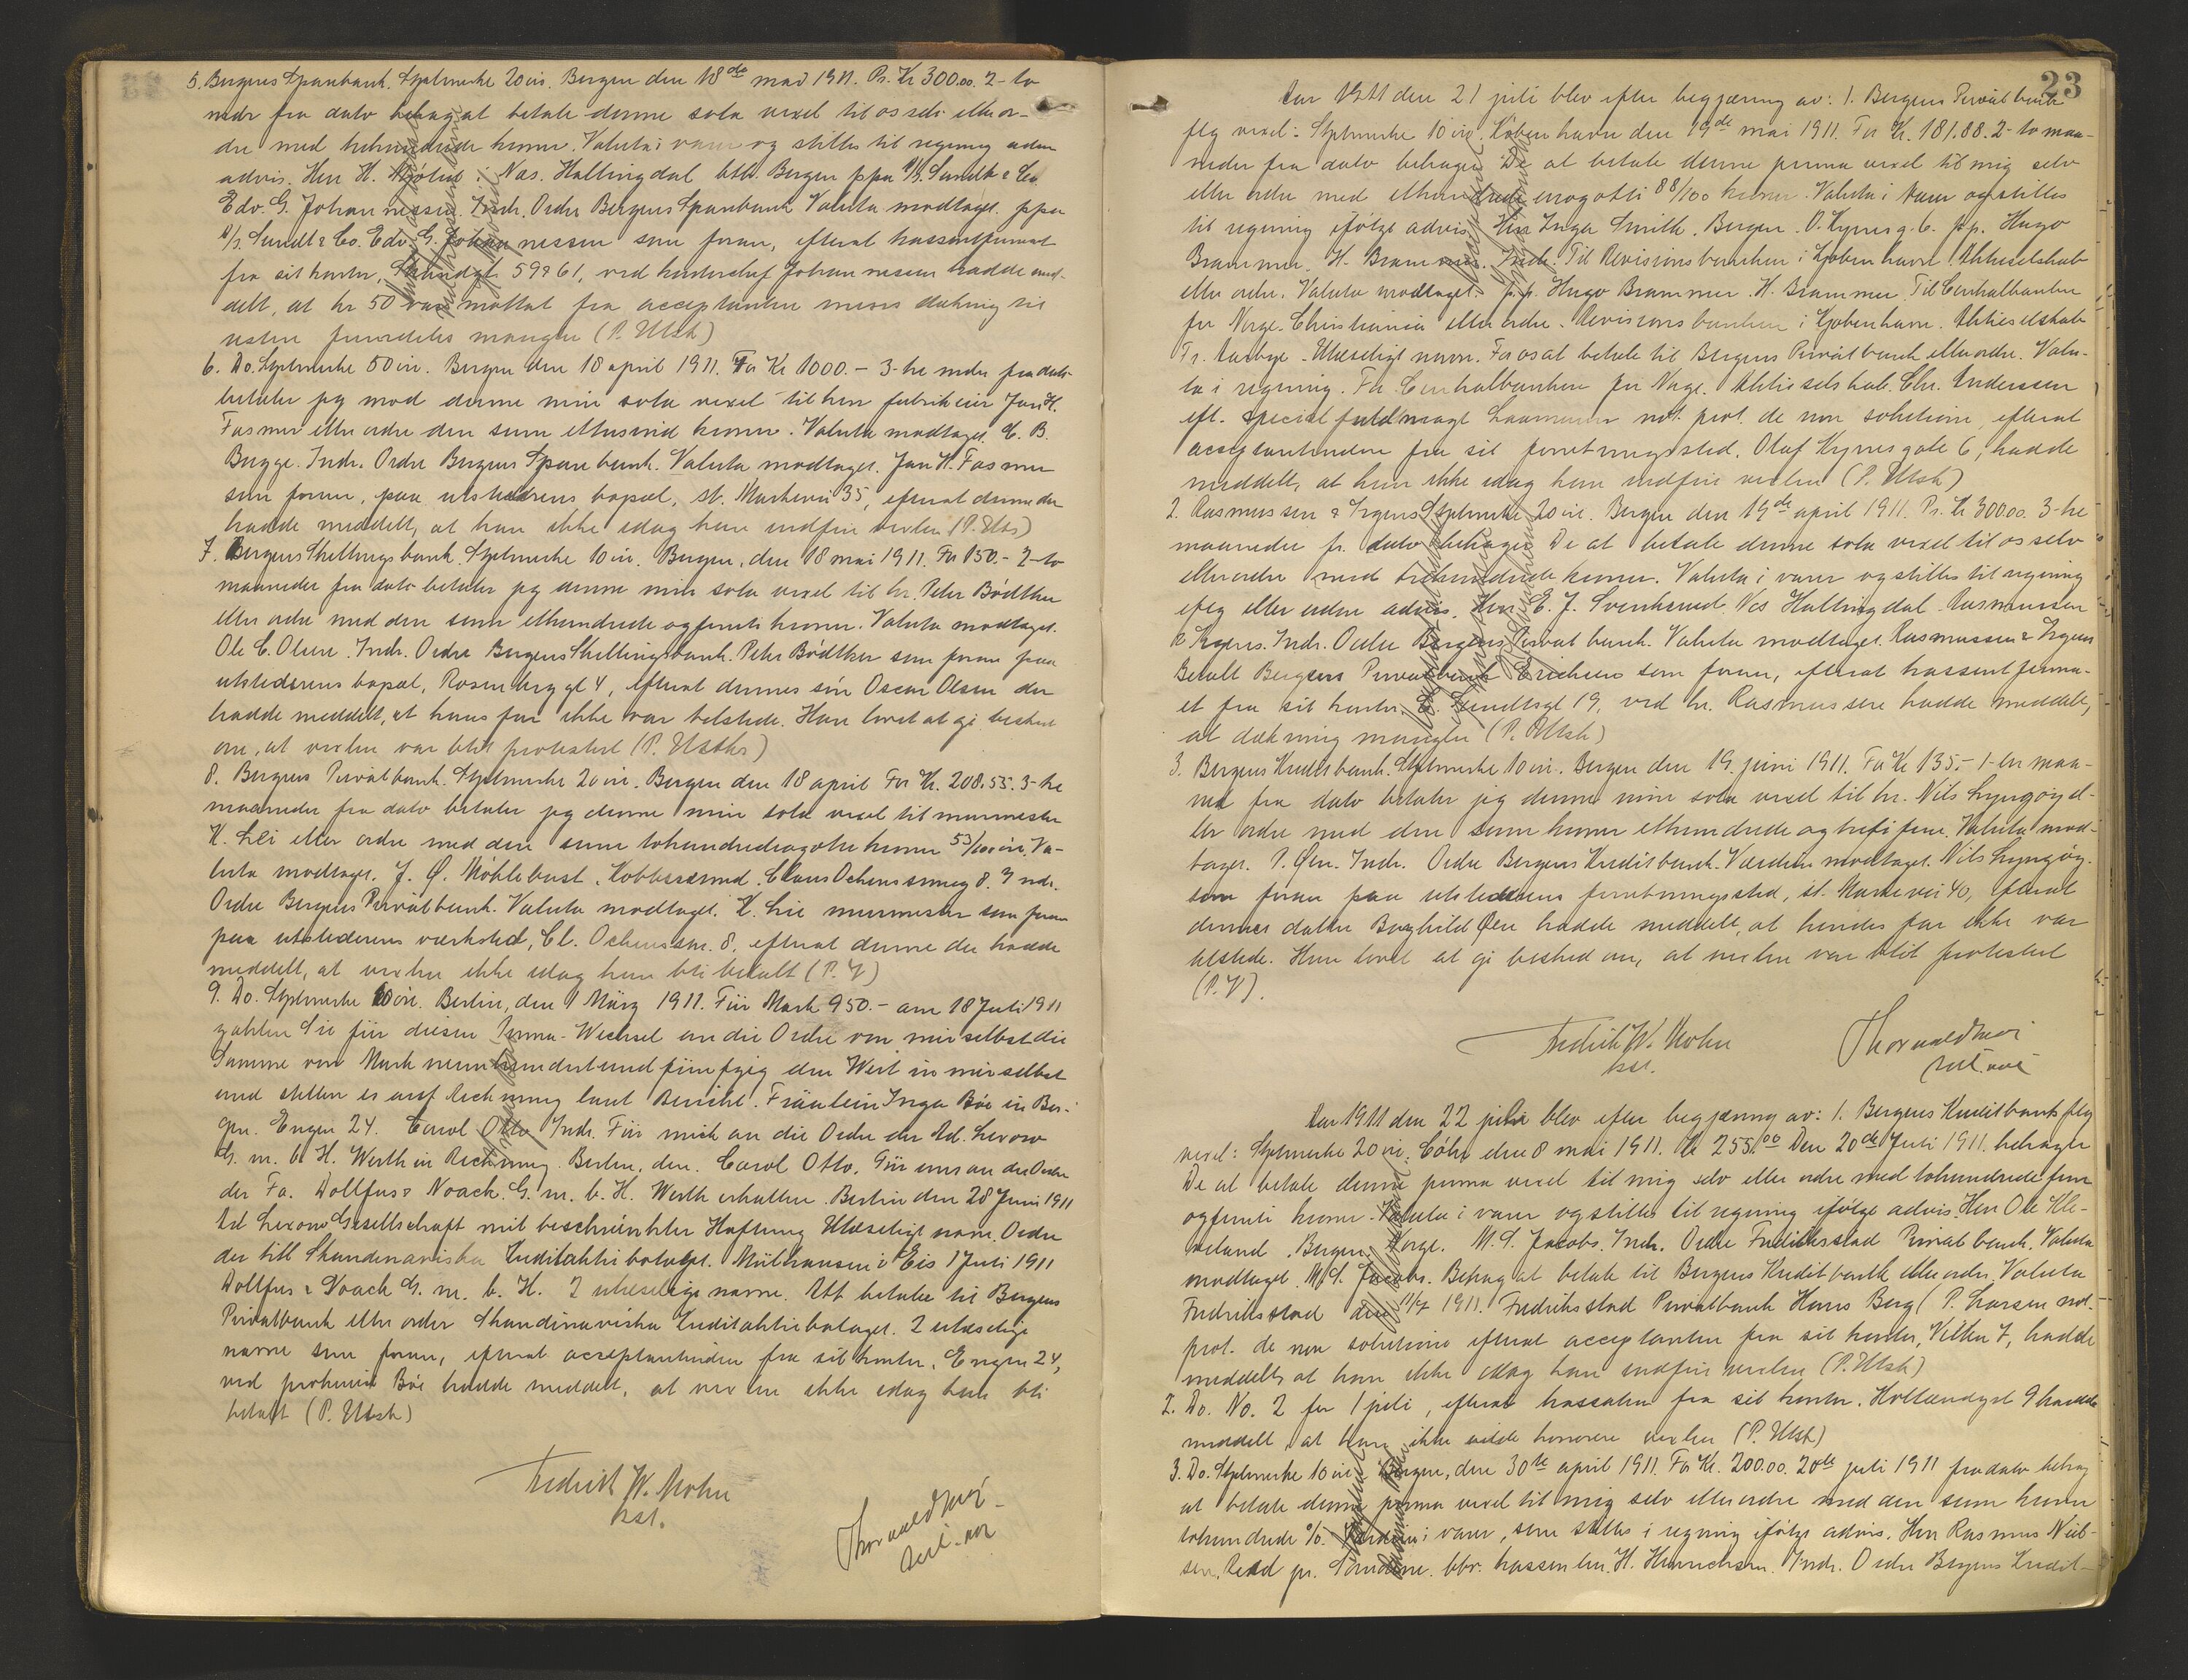 5. Bergens Sparebank. Stplmerke 20 øre. Bergen den 18de mai 1911. Pr. Kr 300.00. 2- to
mdr fra dato behag at betale denne sola vexel til os selv eller or-
dre med trehundrede kroner. Valuta i varer og stilles til regning uden
advis. Herr H. i Nas. Hallingdal btb. Bergen ppa A/S. Sundt & Co.
Edv. G. Johannessen. Indr. Ordre Bergens Sparebank Valuta modtaget. ppa
A/S. Sundt & Co. Edv. G. Johannessen som foran, efterat trassentfirmaet
fra sit kontor, Strandgt. 59 & 61, ved kontorchef Johannessen hadde med-
delt, at kr 50 var mottat fra acceptanten mens dækning til
resten fremdeles mangler (P. Utsk)
6. Do. Stplmerke 50 øre. Bergen den 18 april 1911. For Kr 1000.- 3- tre mdr fra dato
betaler jeg mod denne min sola vexel til herr fabrikeier Jan H.
Fasmer eller ordre den sum ettusind kroner. Valuta modtaget. C. B.
Bugge. Indr. Ordre Bergens Sparebank. Valuta modtaget. Jan H. Fasmer
som foran, paa utstederens bopæl, st. Markevei 35, efterat denne der
hadde meddelt, at han ikke idag kan indfri vexlen (P. Uts)
7. Bergens Skillingsbank. Stplmerke 10 øre. Bergen, den 18 mai 1911. For 150.- 2- to
maaneder fra dato betaler jeg denne min sola vexel til hr. Peter Bødtker
eller ordre med den sum ethundrede og femti kroner. Valuta modtaget.
Ole C. Olsen. Indr. Ordre Bergens Skillingsbank. Peter Bødtker som foran paa
utstederens bopæl, Rosenberggt 4, efterat dennes søn Oscar Olsen der
hadde meddelt, at hans far ikke var tilstede. Han lovet at gi besked
om, at vexlen var blit protestert (P. Utsk)
8. Bergens Privatbank. Stplmerke 20 øre. Bergen den 18 april For Kr. 208.53. 3- tre
maaneder fra dato betaler jeg denne min sola vexel til murmester
K. Lei eller ordre med den sum tohundredeogotte kroner 53/100 øre. Va-
luta modtaget. J. Ø. Møhlebust, Kobbersmed. Claus Ochenssmug 8. Indr.
Ordre Bergens Privatbank. Valuta modtaget. K. Lie murmester som foran
paa utstederens værksted, Cl. Ochenssm. 8, efterat denne der hadde
meddelt, at vexlen ikke idag kan bli betalt (P. V)
9. Do. Stplmerke 10 øre. Berlin, den 1 März 1911. Für Mark 950.- am 18 Juli 1911
zahlen Sie für diesen Prima-Wechsel an die Ordre von mir selbst die
Summe von Mark neunhundertundfünfzig den Wert in mir selbst
und stellen es auf Rechnung laut Bericht. Fräulein Inga Bøe in Ber-
gen. Engen 24. Carol Otto Indr. Für mich an die Ordre der Ad. Lexow
G. m. b. H. Werth in Rechnung. Berlin, den. Carol Otto. Für uns an die Ordre
der Fa. Dollfus & Noack. G. m. b. H. Werth erhalten. Berlin den 28 Juni 1911
Ad Lexow Gesellschaft mit beschränkter Haftung Ulæseligt navn. Ordre
der till Skandinaviska Kreditaktiebolaget. Mülhausen i Els 1 Juli 1911
Dollfus & Noack G. m. b. H. 2 ulæselige navne. Att betale til Bergens
Privatbank eller order Skandinaviska Kreditaktiebolaget. 2 ulæselige
navne som foran, efterat acceptantinden fra sit kontor, Engen 24,
ved prokurist Bøe hadde meddelt, at vexlen ikke idag kan bli
betalt (P. Utsk)
Fredrik W. Mohn
kst.
23
Aar 1911 den 21 juli blev efter begjæring av: 1. Bergens Privatbank
flg vexel: Stplmerke 10 øre. København den 19de mai 1911. For Kr. 181.88. 2- to maa-
neder fra dato behager De at betale denne prima vexel til mig selv
eller ordre med ethundredeenogotti 88/100 kroner. Valuta i varer og stilles
til regning ifølge advis. Inga Smith. Bergen. O. Kyrresg. 6. p.p. Hugo
Brammer. H. Brammer. Indr. Til Revisionsbanken i Kjøbenhavn Aktieselskab
eller ordre. Valuta modtaget. p.p. Hugo Brammer. H. Brammer. Til Centralbanken
for Norge. Christiania eller ordre. Revisionsbanken i Kjøbenhavn. Aktieselskab
Fr. Aarbye. Ulæseligt navn. For os at betale til Bergens Privatbank eller ordre. Valu-
ta i regning. For Centralbanken for Norge. Aktieselskab. Chr. Anderssen
eft. special fuldmagt not. prot. de non solutione, efterat
acceptantinden fra sit forretningssted, Olaf Kyrres gate 6, hadde
meddelt, at hun ikke idag kan indfri vexlen (P. Utsk)
2. Rasmussen & Irgens Stplmerke 20 øre. Bergen den 19de april 1911. Pr. Kr 300.00. 3- tre
maaneder fr. dato behager De at betale denne sola vexel til os selv
eller ordre med trehundrede kroner. Valuta i varer og stilles til regning
iflg eller uden advis. Herr E. J. Svenkerud. Nes Hallingdal. Rasmussen
& Irgens. Indr. Ordre Bergens Privatbank. Valuta modtaget. Rasmussen & Irgens
Betalt Bergens Privatbank Erichsen som foran, efterat trassentfirma-
et fra sit kontor, C. Sundtsgt 19, ved hr. Rasmussen hadde meddelt,
at dækning mangler (P. Utsk)
3. Bergens Kreditbank. Stplmerke 10 øre. Bergen den 19. juni 1911. For Kr 135.- 1- en maa-
ned fra dato betaler jeg denne min sola vexel til hr. Nils Lyngøy el-
ler ordre med den sum kroner ethundrede og trefifem. Valuta mod-
taget. P. Øen. Indr. Ordre Bergens Kreditbank. Værdien modtaget. Nils Lyngøy.
som foran paa utstederens forretningssted, st. Markevei 40, efterat
dennes datter Borghild Øen hadde meddelt, at hendes far ikke var
tilstede. Hun lovet at gi besked om, at vexlen var blit protestert
(P. V).
Fredrik W. Mohn
kst.
Aar 1911 den 22 juli blev efter begjæring av: 1. Bergens Kreditbank flg
vexel: Stplmerke 20 øre. den 8 mai 1911. Kr 255.00 Den 20de Juli 1911. behager
De at betale denne prima vexel til mig selv eller ordre med tohundrede fem
ogfemti kroner. Valuta i varer og stilles til regning ifølge advis. Herr Ole Kle-
veland. Bergen. Norge. M. S. Jacobs. Indr. Ordre Fredriksstad Privatbank. Valuta
modtaget. M. S. Jacobs. Behag at betale til Bergens Kreditbank eller ordre. Valuta
Fredriksstad den 11/7 1911. Fredriksstad Privatbank Hans Berg P. Larsen not.
prot. de non solutione efterat acceptanten fra sit kontor, Vetten 7, hadde
meddelt, at han ikke idag kan indfri vexlen (P. Utsk)
2. Do. No. 2 for 1 juli, efterat trassaten fra sit kontor. Hollændergt 9 hadde
meddelt, at han ikke vilde honorere vexlen (P. Utsk)
3. Do. Stplmerke 10 øre. Bergen, den 30te april 1911. For Kr. 200.00. 20de juli 1911 fra dato behag
at betale denne prima vexel til mig selv eller ordre med den sum kroner
tohundrede 0/0. Værdien i varer, som stilles i regning ifølge advis. Herr Rasmus Niel-
sen, Reed pr. Sandene. bbr. trassenten. H. Hinrichsen. Indr. Ordre Bergens Kredit-